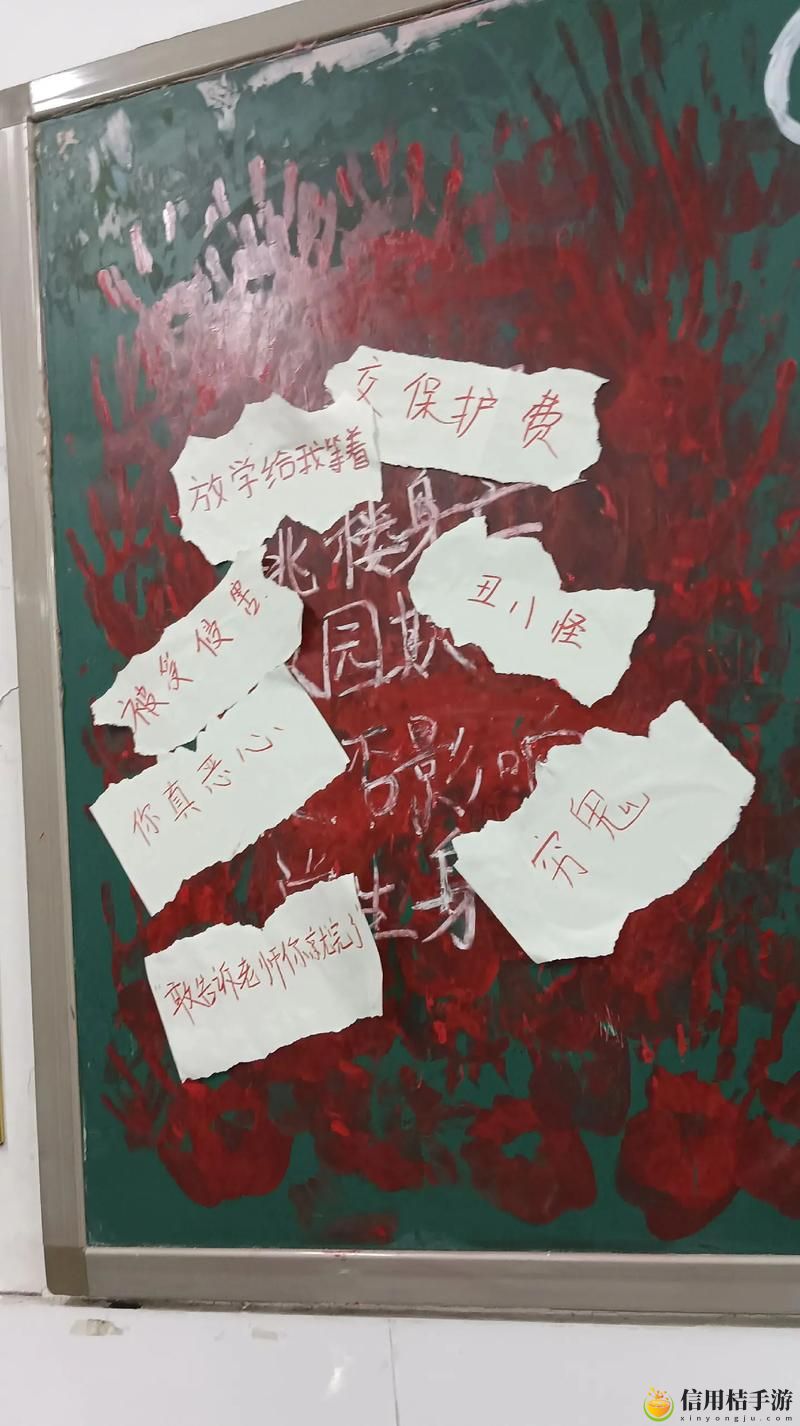 交保护费
放学给我等着
跳楼身亡
丑八怪
被受侵害
校园欺
你真恶心
否影响
穷鬼
生身
敢告诉老师你就完了
信用桔手游
xinyongju.com